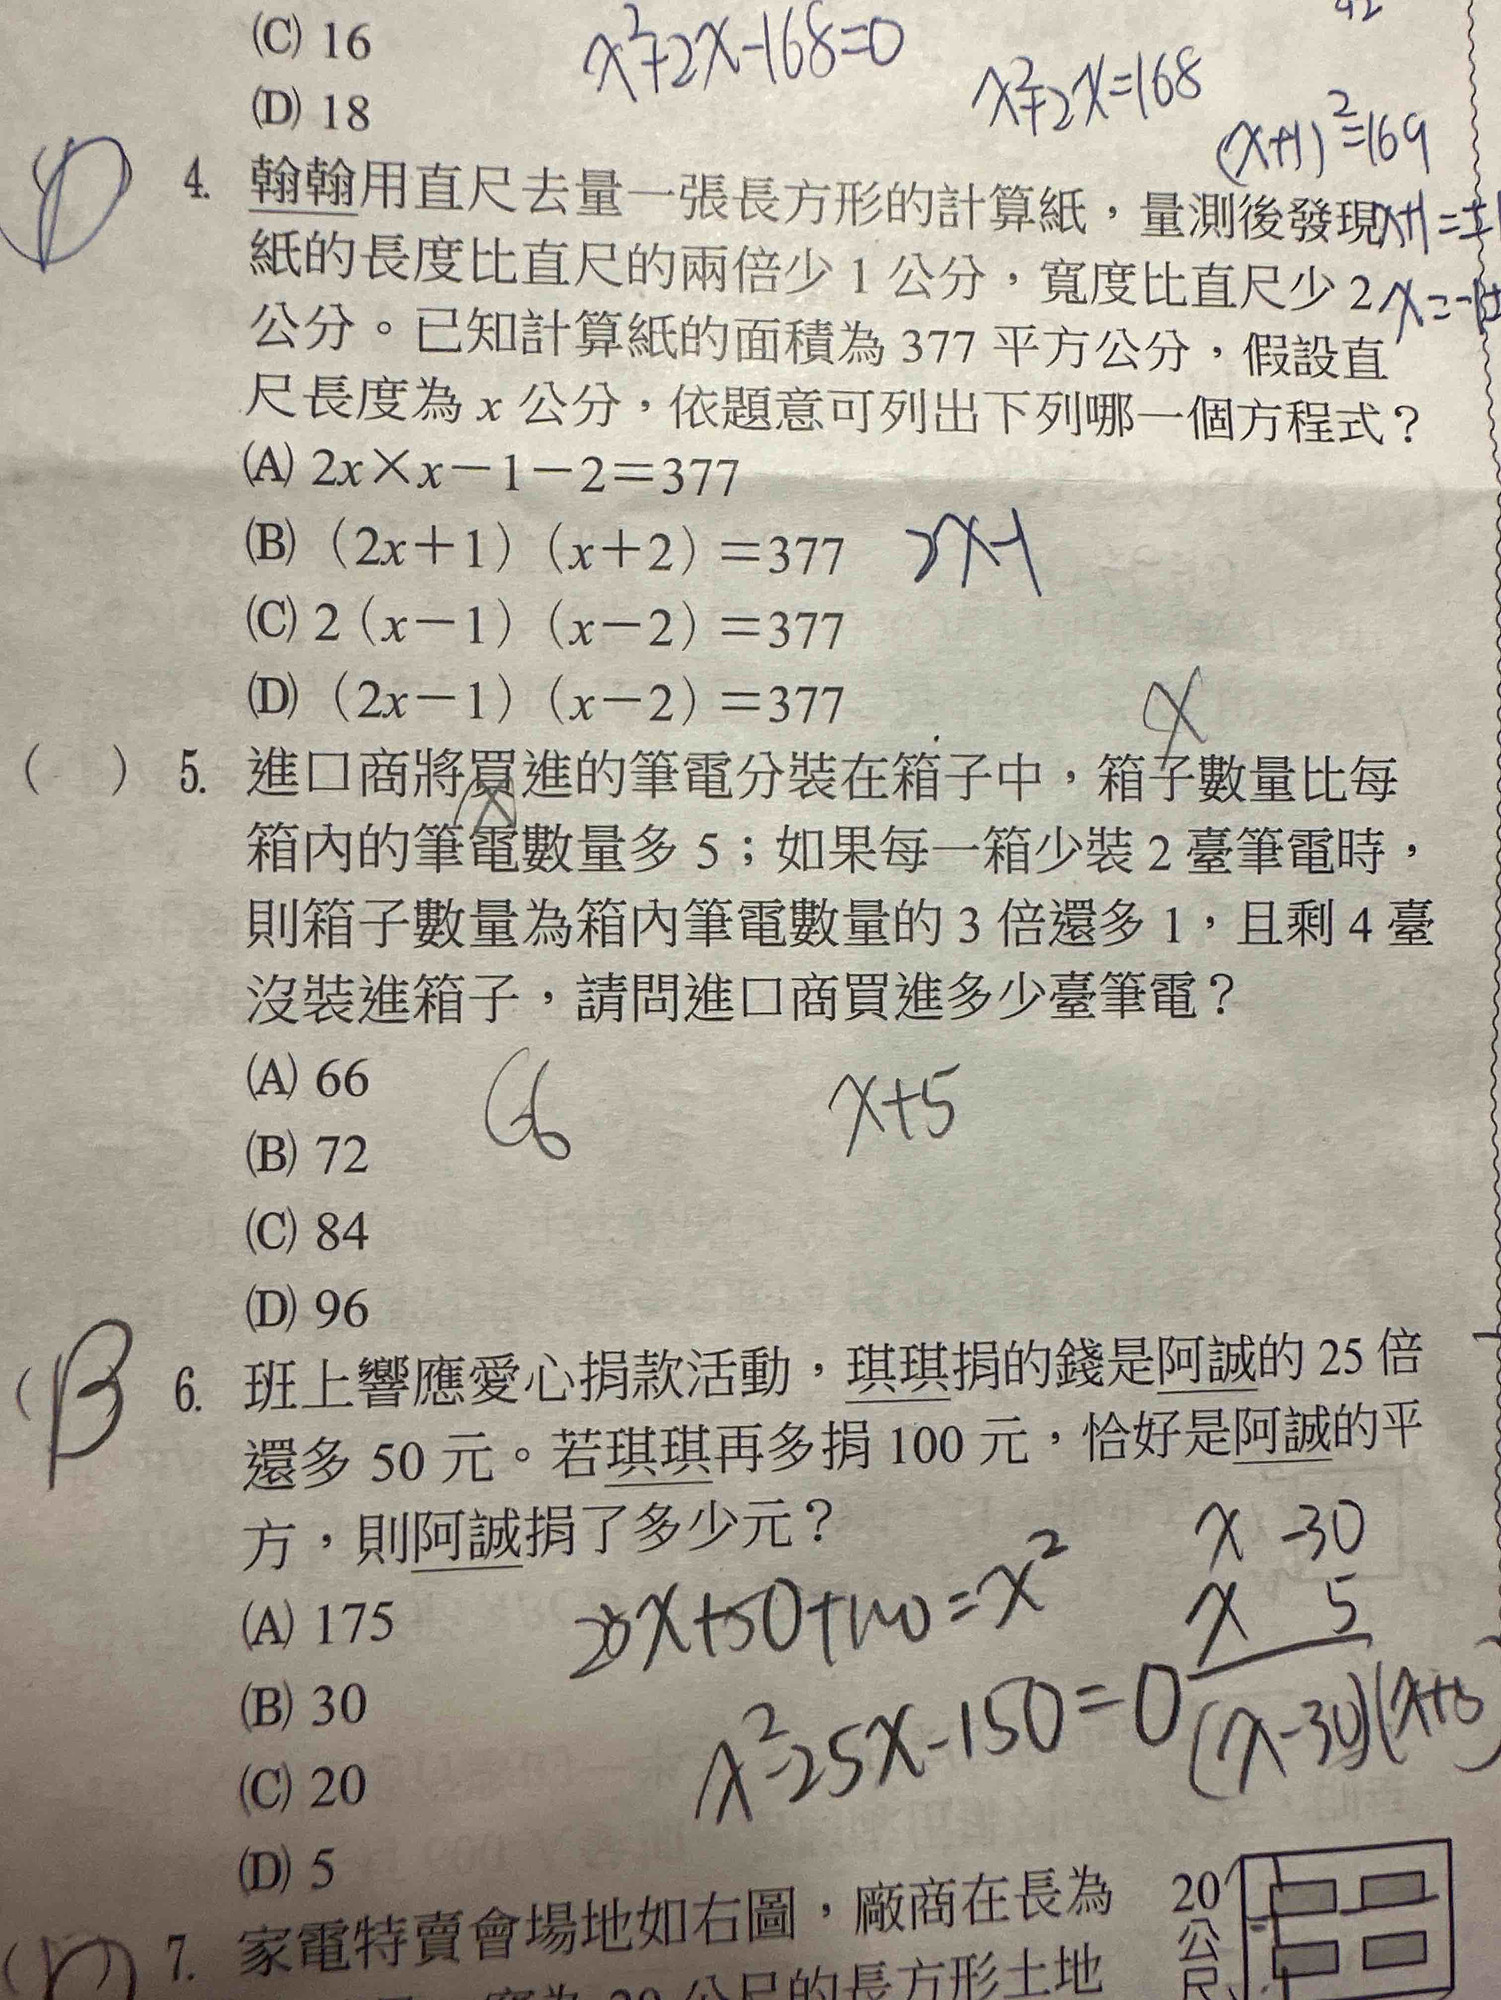 (C) 16
x²+2x-168=0
(D) 18
x²+2x=168
(x+1)²=169
D
4. 翰翰用直尺去量一張長方形的計算紙，量測後發現
x+1=±1
紙的長度比直尺的兩倍少 1 公分，寬度比直尺少 2
公分。已知計算紙的面積為 377 平方公分，假設直
尺長度為 x 公分，依題意可列出下列哪一個方程式？
(A) 2x×x－1－2＝377
(B)（2x＋1）（x＋2）＝377
2x-1
(C) 2（x－1）（x－2）＝377
(D)（2x－1）（x－2）＝377
x
（　）5. 進口商將買進的筆電分裝在箱子中，箱子數量比每
箱內的筆電數量多 5；如果每一箱少裝 2 臺筆電時，
則箱子數量為箱內筆電數量的 3 倍還多 1，且剩 4 臺
沒裝進箱子，請問進口商買進多少臺筆電？
(A) 66
66
x+5
(B) 72
(C) 84
(D) 96
(B
6. 班上響應愛心捐款活動，琪琪捐的錢是阿誠的 25 倍
還多 50 元。若琪琪再多捐 100 元，恰好是阿誠的平
方，則阿誠捐了多少元？
x -30
x 5
(A) 175
25x+50+100=x²
(B) 30
x²-25x-150=0
(x-30)(x+5
(C) 20
(D) 5
7. 家電特賣會場地如右圖，廠商在長為
20
公
尺
20 公尺的長方形土地